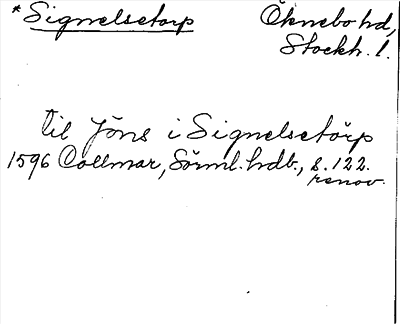 *Signelsetorp
Öknebo hd,
Stockh. l.
til Jöns i Signelsetörp
1596 Collmar, Sörml. hdb., s. 122.
renov.